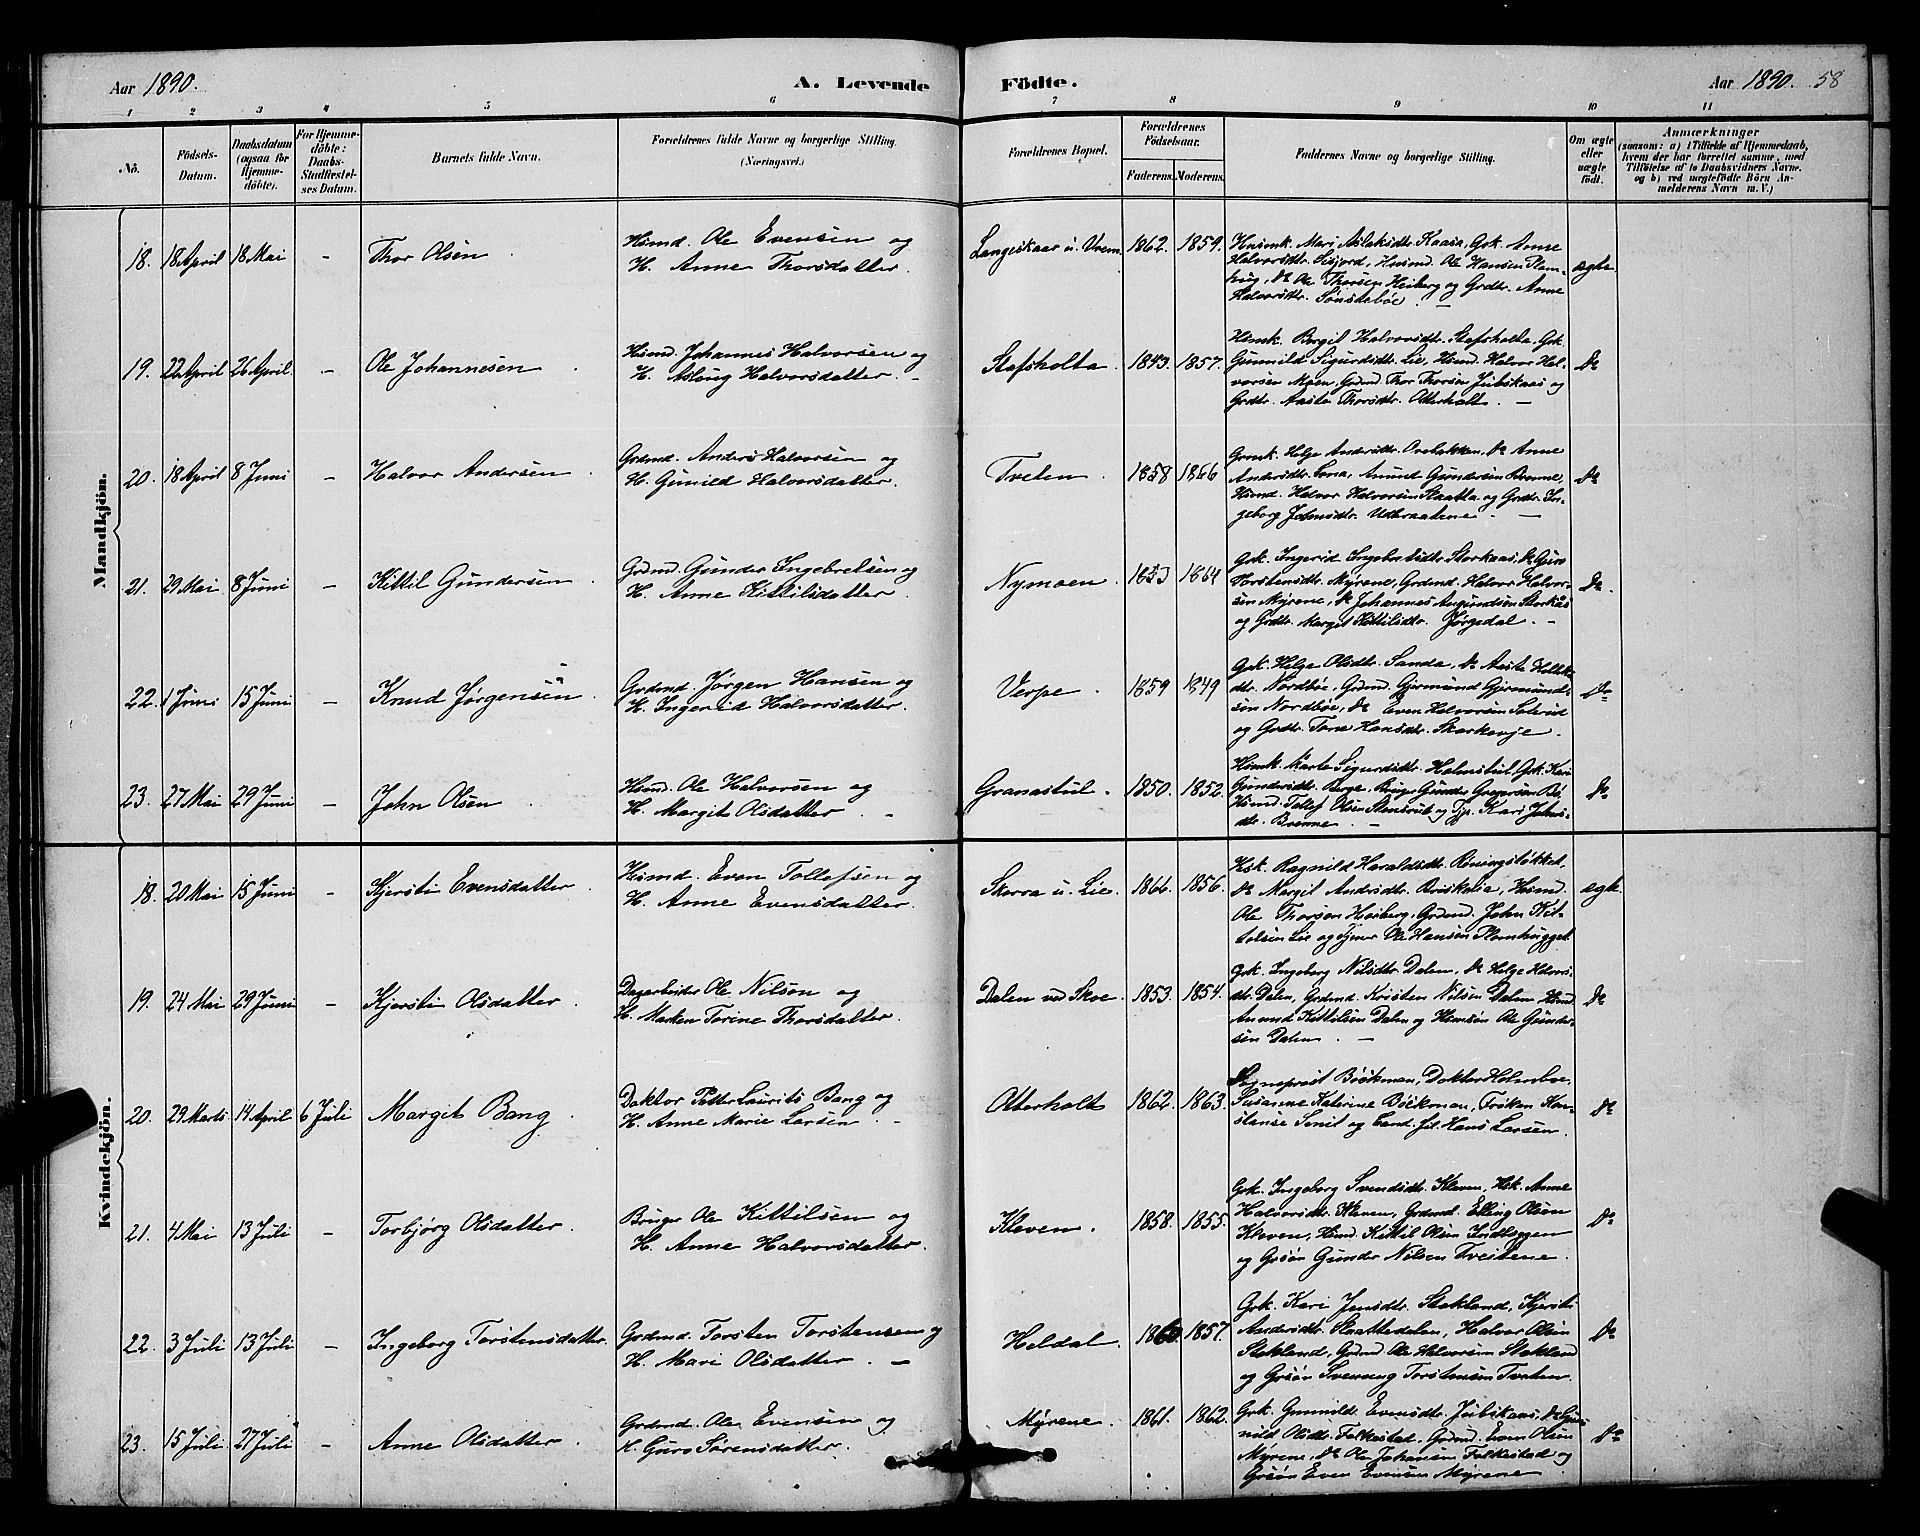 Aar 1890.
A. Levende Födte.
Aar 1890. 58
1 2 3 4 5 6 7 8 9 10 11
No.
Födsels-Datum.
Daabsdatum (ogsaa for Hjemmedöbte).
For Hjemmedöbte: Daabs-Stadfæstelses Datum.
Barnets fulde Navn.
Forældrenes fulde Navne og borgerlige Stilling. (Næringsvei.)
Forældrenes Bopæl.
Forældrenes Födselsaar.
Faderens. Moderens.
Faddernes Navne og borgerlige Stilling.
Om ægte eller uægte födt.
Anmærkninger
(saasom: a) i Tilfælde af Hjemmedaab,
hvem der har forrettet samme, med
Tilföielse af to Daabsvidners Navne,
og b) ved uægtefödte Börn Anmelderens Navn m. V.)
Mandkjön.
18. 18 April 18 Mai - Thor Olsen
Husmd. Ole Evensen og
H. Anne Thorsdatter.
Langeskaar u. Vrem 1862. 1859.
Husmk. Mari Aslaksdtr. Kaasa, Grk. Anne
Halvorsdtr. Sisjord, Husmd. Ole Hansen Plom-
hug, Do Ole Thorsen Heiberg og Grdtr. Anne
Halvorsdtr. Sönstebøe. -
ægte
19. 22 April 26 April. - Ole Johannesen
Husmd. Johannes Halvorsen og
H. Aslaug Halvorsdatter. -
Stafsholta. 1843. 1857.
Husmk. Bergit Halvorsdtr. Stafsholta, Gk.
Gunnild Sigurdsdtr. Lie, Husmd. Halvor Hal-
vorsen Moen, Grdmd. Thor Thorsen Jubskaas og
Grdtr. Aaste Thorsdtr. Otterholt. -
Do
20. 18 April 8 Juni - Halvor Andersen
Grdmd. Anders Halvorsen og
H. Gunild Halvorsdatter.
Tveten. 1858 1866
Grmk. Helge Andersdtr. Ovebakken, Do Anne
Andersdtr. Lona, Amund Gundersen Brenne,
Husmd. Halvor Halvorsen Slaatta og Grdtr. In-
geborg Johnsdtr. Udbraatene. -
Do
21. 29 Mai 8 Juni - Kittil Gundersen
Grdmd. Gunder Ingebretsen og
H. Anne Kittilsdatter.
Nymoen. 1853 1864
Grk. Ingerid Ingebretsdtr. Storkaas, Do Guro
Torstensdtr. Myrene, Grdmd. Halvor Halvor-
sen Myrene, Do Johannes Amundsen Storkaas
og Grdtr. Marget Kittilsdtr. Jørgedal. -
Do.
22. 1 Juni 15 Juni - Knud Jørgensen
Grdmd. Jørgen Hansen og
H. Ingerid Halvorsdatter.
Verpe. 1859 1849
Grk. Helge Olsdtr. Sanda, Do Aaste
dtr. Nordbøe, Grdmd. Gjermund Gjermund-
sen Nordbøe, Do Even Halvorsen
og Grdtr. Tone Hansdtr.
Do
23. 27 Mai 29 Juni - John Olsen
Husmd. Ole Halvorsen og
H. Margit Olsdatter. -
Granastul. 1850. 1852.
Husmk. Marte Sigurdsdtr. Holmstul, Grk. Kari
Gundersdtr. Berge, Bruger Gunder Gregersen Bø,
Husmd. Tollef Olsen Stensrud og Tjp. Kari Johns-
dtr. Brenne. -
Do
Kvindekjön.
18. 20 Mai 15 Juni - Kjersti Evensdatter
Husmd. Even Tollefsen og
H. Anne Evensdatter.
Skorra u. Lie. 1866. 1856.
Hsk. Ragnild Haraldsdtr. Röningslökket,
Do Margit Andersdtr. Briskelia, Husmd.
Ole Thorsen Heiberg, Grdmd. John Kit-
tilsen Lie og Tjener Ole Hansen Plomhugget.
ægte.
19. 24 Mai 29 Juni - Kjersti Olsdatter.
Dagarbeider Ole Nilsen og
H. Maren Torine Thorsdatter.
Dalen ved Skoe. 1853. 1854.
Grk. Ingeborg Nilsdtr. Dalen, Do Helge Halvors-
dtr. Dalen, Grdmd. Kristen Nilsen Dalen, Husmd.
Amund Kittilsen Dalen og Husmsön Ole Gunder-
sen Dalen. -
Do
20. 29 Marts 14 April 6 Juli Margit Bang.
Doktor Petter Laurits Bang og
H. Anne Marie Larsen. -
Otterholt 1862. 1863.
Sogneprest Böckman, Doktor Holmboe,
Susanne Katerine Böckman, Fröken Kon-
stanse Smit og Cand. jd. Hans Larsen.
Do
21. 4 Mai 13 Juli - Torbjörg Olsdatter.
Bruger Ole Kittilsen og
H. Anne Halvorsdatter.
Kleven. 1858. 1855.
Grk. Ingeborg Svendsdtr. Kleven, Hsk. Anne
Halvorsdtr. Kleven, Grdmd. Elling Olsen
Kleven, Husmd. Kittil Olsen Indlæggen
og Grsön Gunder Nilsen Tveitene.
Do
22. 3 Juli 13 Juli - Ingeborg Torstensdatter.
Grdmd. Torsten Torstensen og
H. Mari Olsdatter. -
Heldal. 1860. 1857.
Grk. Kari Jensdtr. Stokland, Kjersti
Andersdtr. Slaattedalen, Halvor Olsen
Stokland, Grdmd. Ole Halvorsen Stokland
og Grsön Svenung Torstensen Tveten.
Do
23. 15 Juli 27 Juli - Anne Olsdatter.
Grdmd. Ole Evensen og
H. Guro Sörensdatter.
Myrene. 1861. 1862.
Grk. Gunnild Evensdtr. Jubskaas, Do Gun-
nild Olsdtr. Folkestad, Grdmd. Even Olsen
Myrene, Do Ole Johansen Folkestad og
Grsön Even Evensen Myrene.
Do